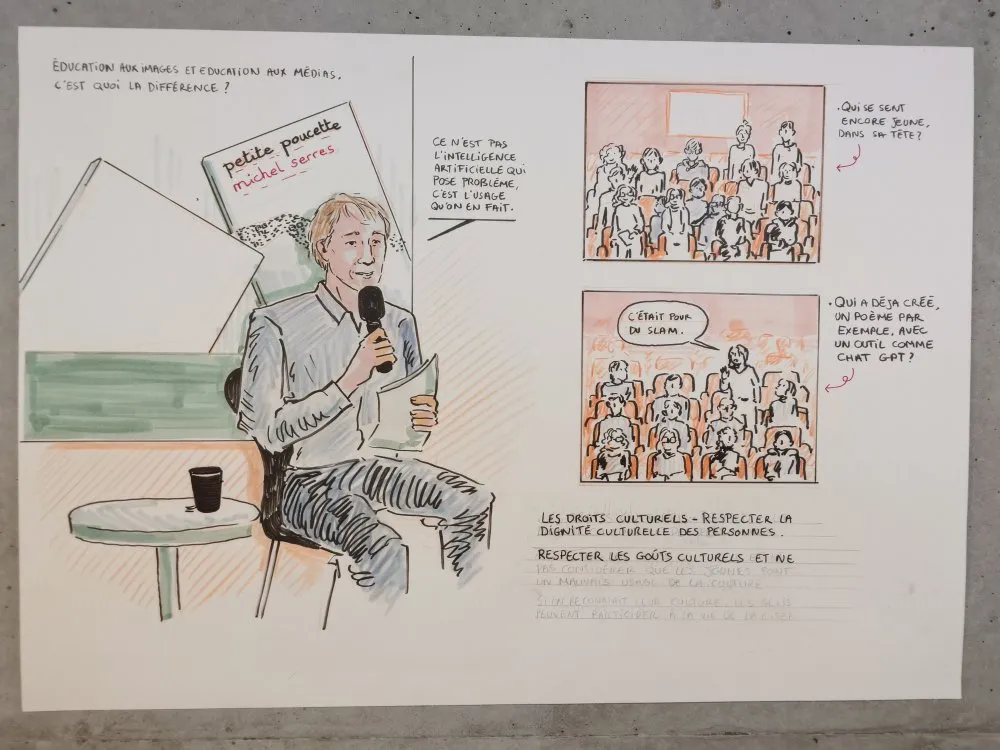 ÉDUCATION AUX IMAGES ET EDUCATION AUX MÉDIAS,
C'EST QUOI LA DIFFÉRENCE ?
petite poucette
michel serres
CE N'EST PAS
L'INTELLIGENCE
ARTIFICIELLE QUI
POSE PROBLÈME,
C'EST L'USAGE
QU'ON EN FAIT.
. QUI SE SENT
ENCORE JEUNE,
DANS SA TÊTE ?
C'ÉTAIT POUR
DU SLAM.
. QUI A DÉJA CRÉÉ,
UN POÈME PAR
EXEMPLE, AVEC
UN OUTIL COMME
CHAT GPT ?
LES DROITS CULTURELS - RESPECTER LA
DIGNITÉ CULTURELLE DES PERSONNES.
RESPECTER LES GOÛTS CULTURELS ET NE
PAS CONSIDÉRER QUE LES JEUNES FONT
UN MAUVAIS USAGE DE LA CULTURE
SI ON RECONNAIT LEUR CULTURE, LES GENS
PEUVENT PARTICIPER À LA VIE DE LA